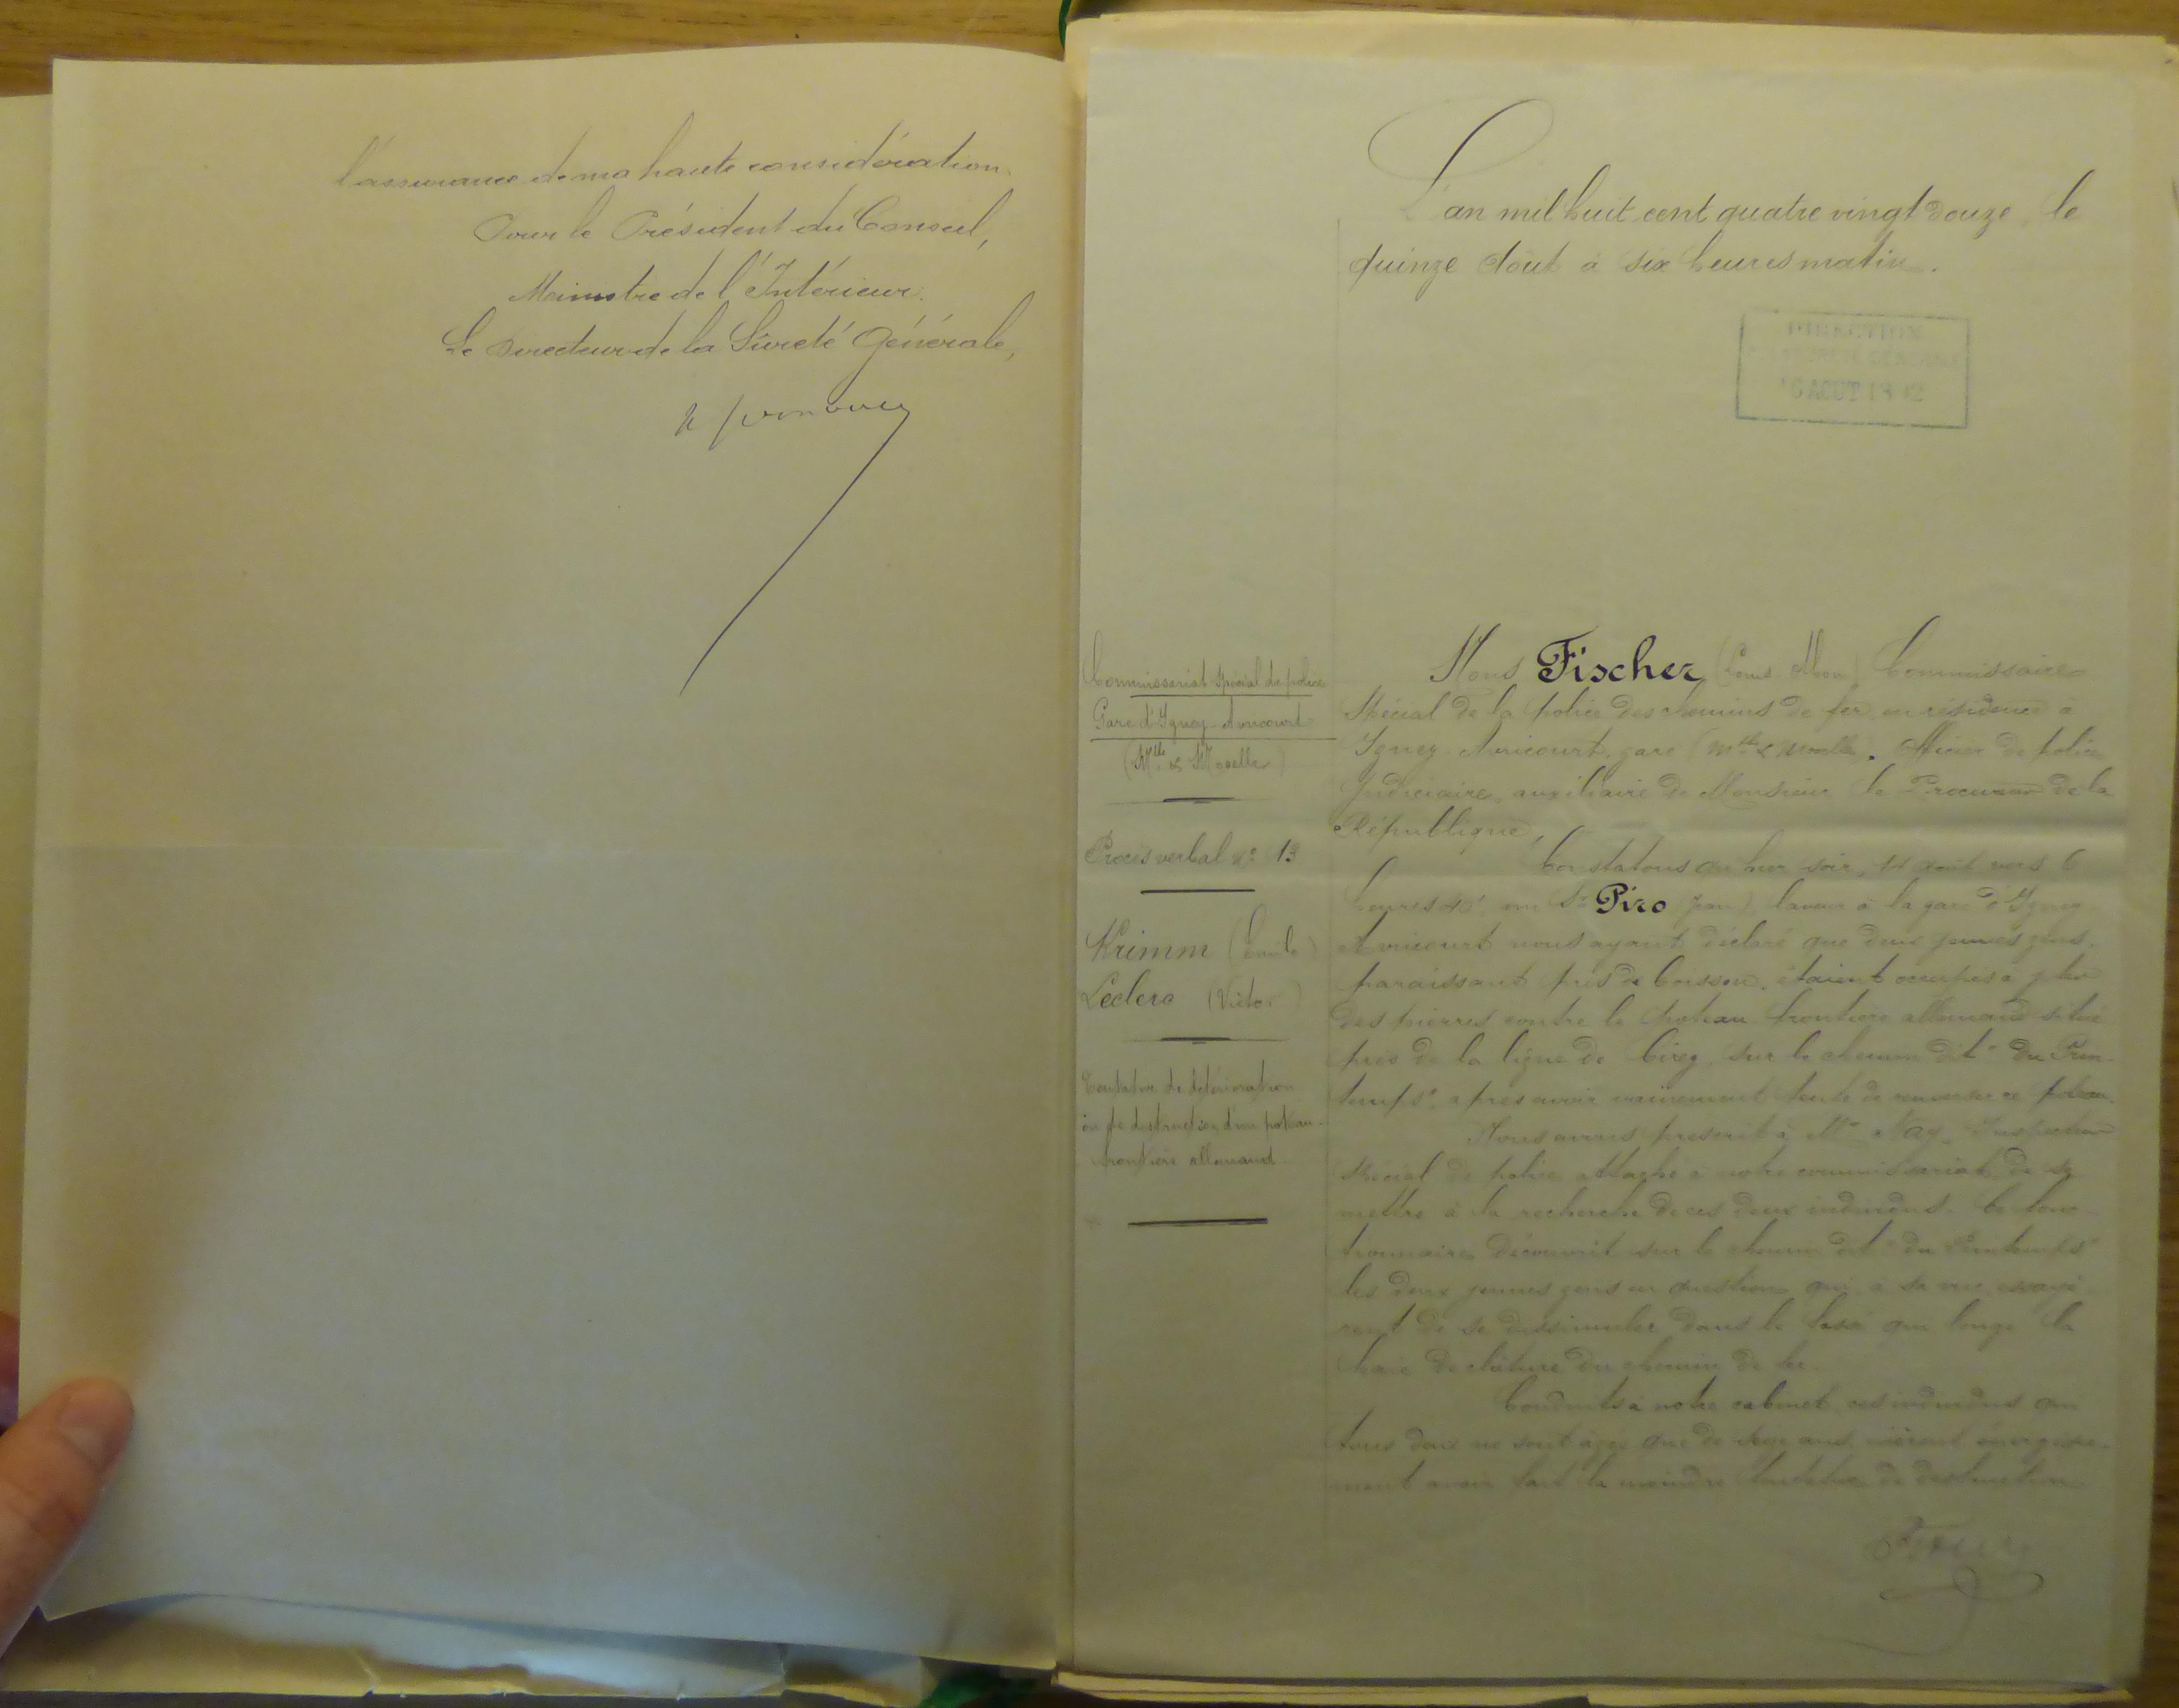 l'assurance de ma haute considération.
Pour le Président du Conseil,
Ministre de l'Intérieur.
Le Directeur de la Sûreté Générale,
L'an mil huit cent quatre vingt douze, le
quinze Août à six heures matin.
DIRECTION
AOUT 1892
Commissariat Spécial de police
Gare d'Igney-Avricourt
(Mthe & Moselle)
Procès verbal No 13
Krimm (Emile)
Leclerc (Victor)
Tentative de détérioration
ou de destruction d'un poteau-
frontière allemand.
Nous Fischer (Louis ) Commissaire
Spécial de la police des chemins de fer en résidence à
Igney-Avricourt, gare (Mthe & Moselle), Officier de police
Judiciaire, auxiliaire de Monsieur le Procureur de la
République,
Constatons qu'hier soir, 14 août vers 6
heures un Sr Piro (Jean), laveur à la gare d'Igney
Avricourt nous ayant déclaré que deux jeunes gens,
paraissant pris de boisson, étaient occupés à jeter
des pierres contre le poteau frontière allemand situé
près de la ligne de Cirey, sur le chemin dit "du Prin-
temps", après avoir vainement tenté de renverser ce poteau.
Nous avons prescrit à Mr Nay, Inspecteur
Spécial de police attaché à notre commissariat, de se
mettre à la recherche de ces deux individus. Ce fonc-
tionnaire découvrit sur le chemin dit "du Printemps"
les deux jeunes gens en question qui, à sa vue, essayè-
rent de se dissimuler dans le fossé qui longe la
haie de clôture du chemin de fer.
Conduits à notre cabinet, ces individus qui
tous deux ne sont âgés que de seize ans, nièrent énergique-
ment avoir fait la moindre tentative de destruction